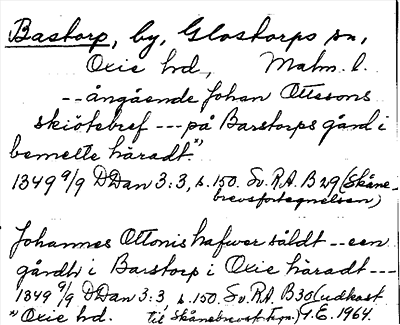 Bastorp, by, Glostorps sn,
Oxie hd, Malm. l.
-- ångående Johan Ottesons
skiötebref --- på Barstorps gård i
bemelte häradt."
1349 9/9 DDan 3:3, s. 150. Sv. R.A. B 29 (Skåne-
brevsfortegnelsen)
Johannes Ottonis hafwer såldt -- een
gårdh i Barstorp i Oxie häradt ---
1349 9/9 DDan 3:3, s. 150. Sv. R.A. B 30 (udkast
") Oxie hd. til Skånebrevsf.) 4.E. 1964.